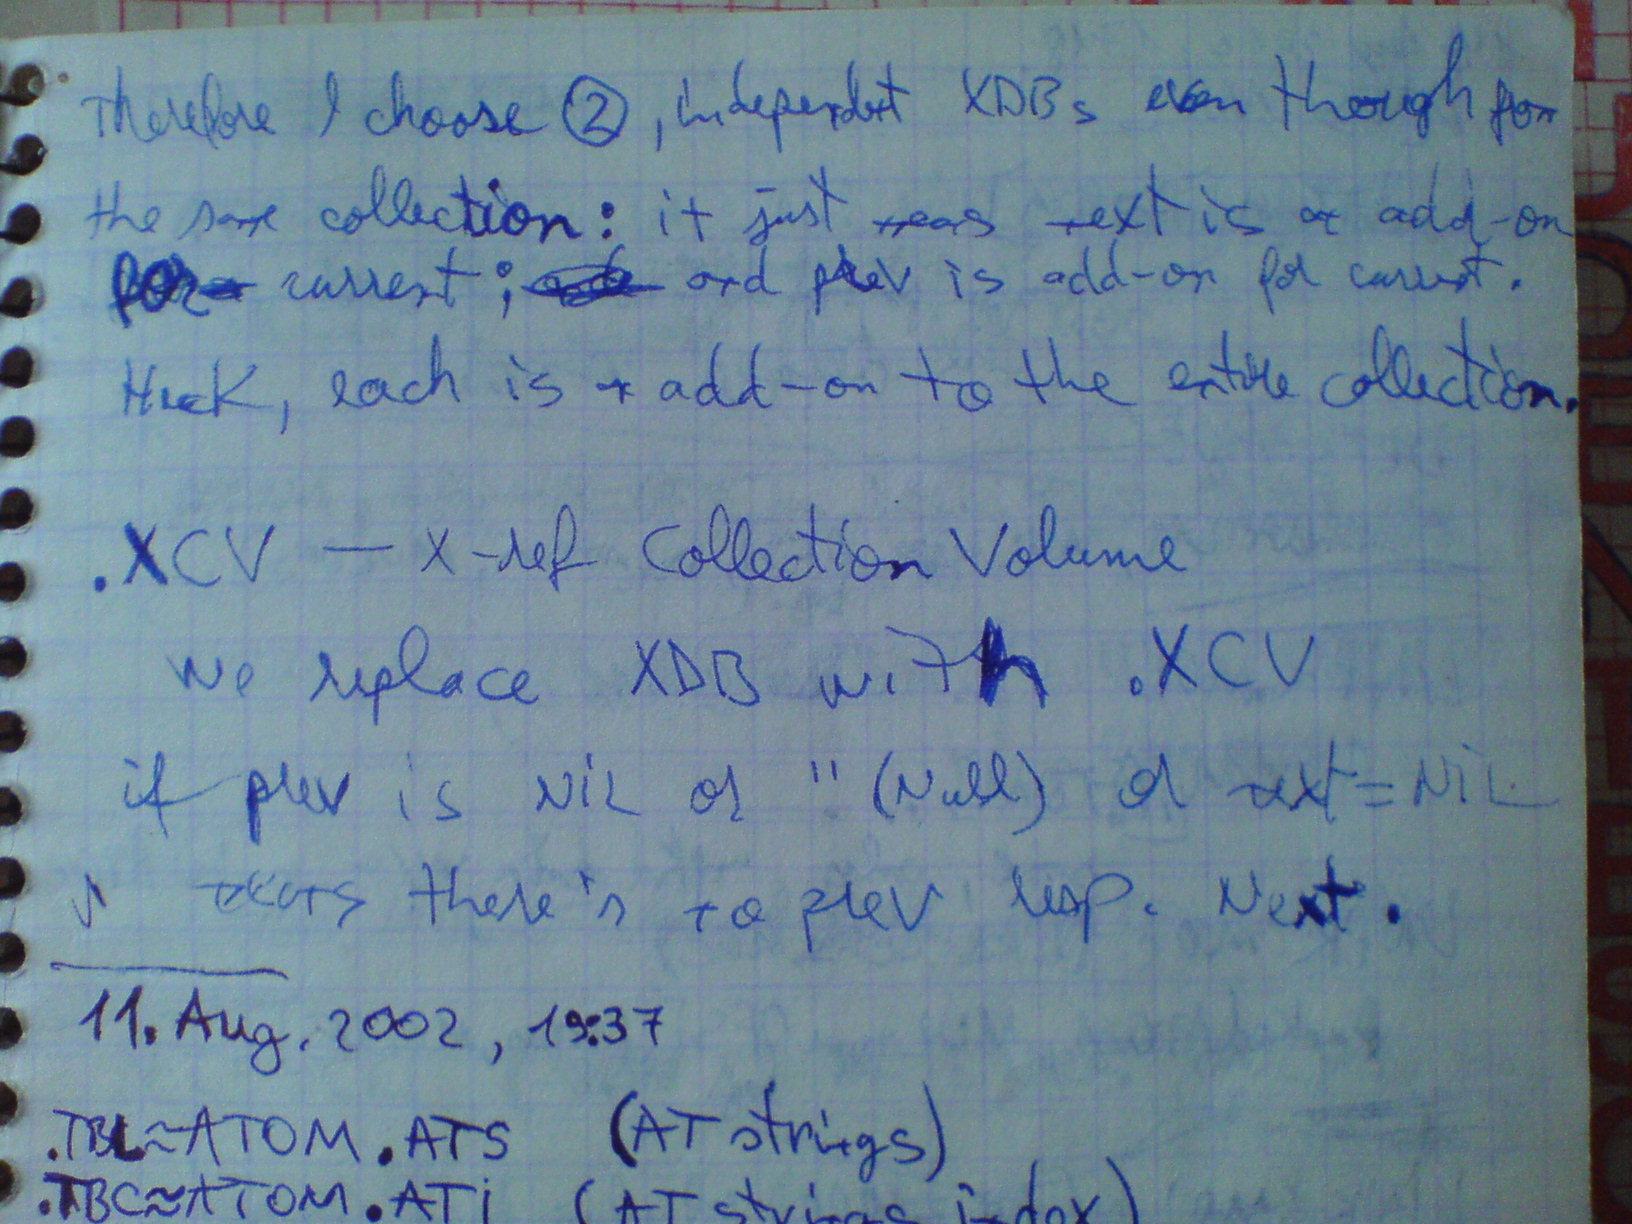 Therefore I choose ②, independent XDBs even though for
the same collection: it just means next is an add-on
for current; and prev is add-on for current.
Heck, each is an add-on to the entire collection.
.XCV — X-ref Collection Volume
We replace XDB with .XCV
if prev is NiL or '' (Null) or next = NiL
means there's no prev resp. Next.
11. Aug. 2002, 19:37
.TBL ≈ ATOM.ATS (AT strings)
.TBC ≈ ATOM.ATi (AT strings index)